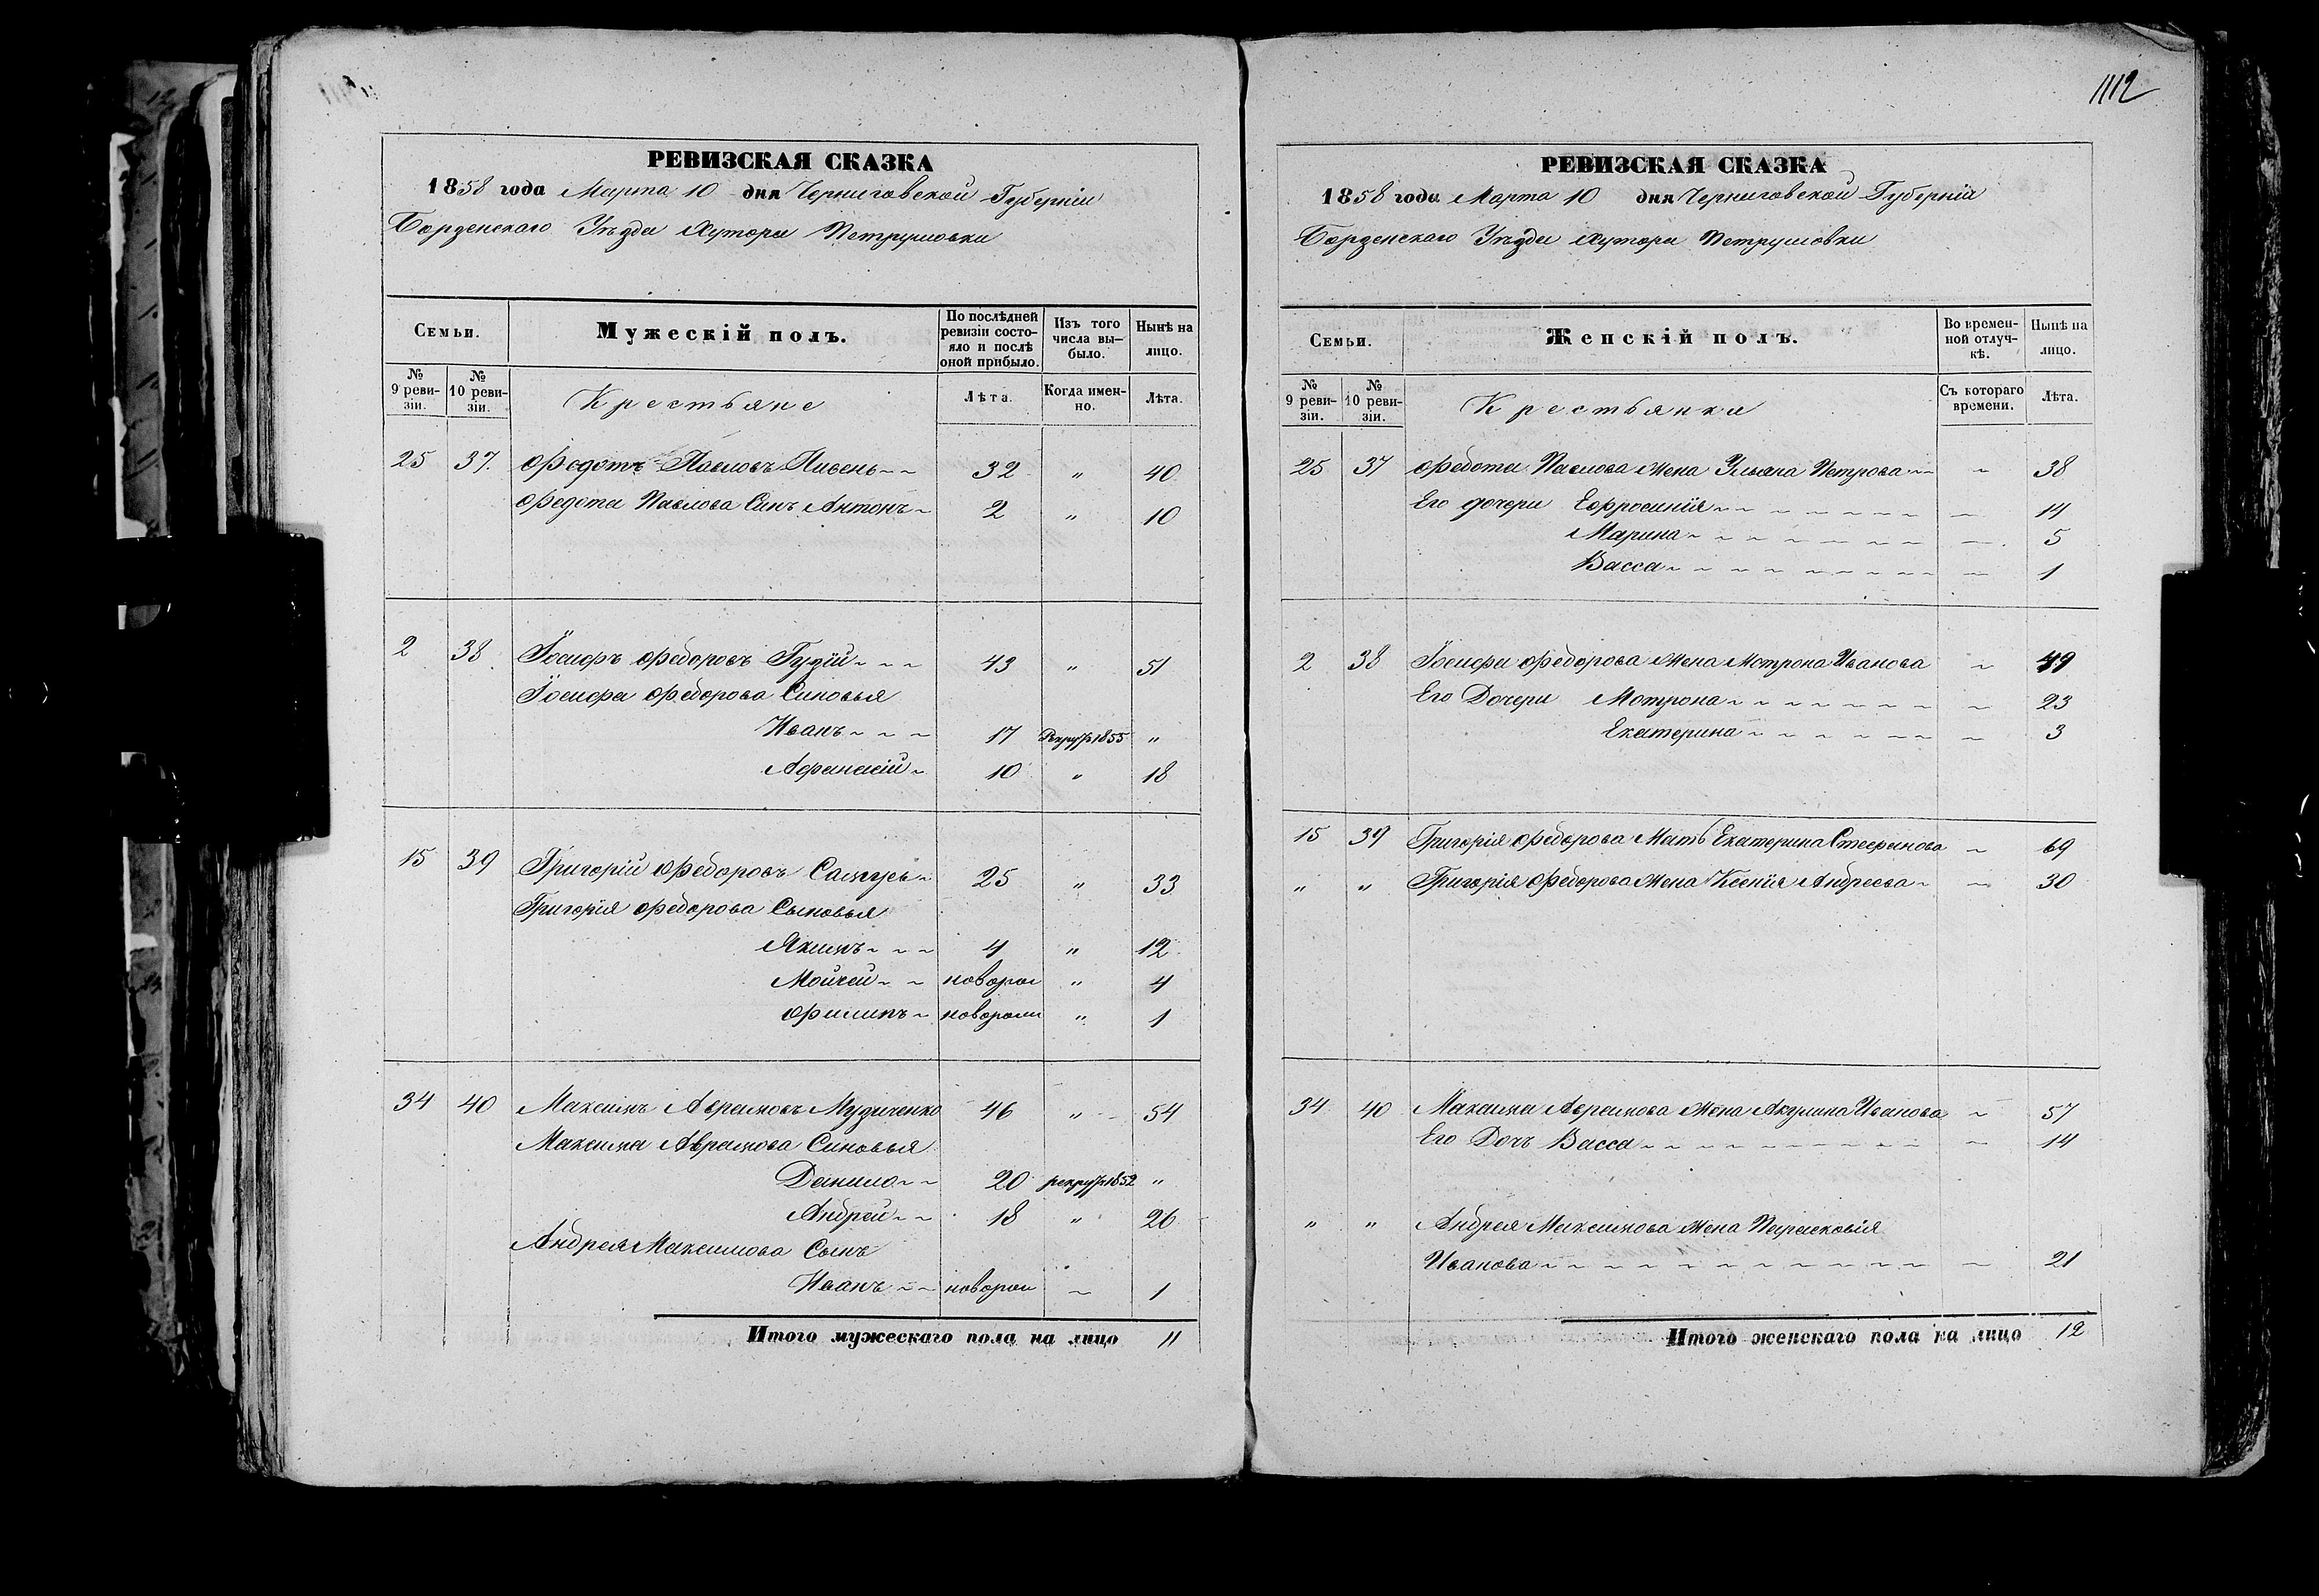 1112
РЕВИЗСКАЯ СКАЗКА
1858 года Марта 10 дня Черниговской Губерніи
Борзенскаго Уѣзда Хутора Петрушовки
Семьи.
Мужескій полъ.
По послѣдней ревизіи состо-
яло и послѣ
оной прибыло.
Изъ того
числа вы-
было.
Нынѣ на
лицо.
№
9 реви-
зіи.
№
10 реви-
зіи.
Крестьяне
Лѣта.
Когда имен-
но.
Лѣта.
25 37. Федотъ Павловъ Пивень 32 " 40
Федота Павлова Синъ Антонъ 2 " 10
2 38 Іосифъ Федоровъ Гудзій 43 " 51
Іосифа Федорова Синовья
Иванъ 17 Рекрут 1855 "
Афанасій 10 " 18
15 39 Григорій Федоровъ 25 " 33
Григорія Федорова Сыновья
Якимъ 4 " 12
Мойсей новорож " 4
Филипъ новорож " 1
34 40 Максимъ Аврамовъ Мудиченко 46 " 54
Максима Аврамова Синовья
Данило 20 рекрут 1852 "
Андрей 18 " 26
Андрея Максимова Сынъ
Иванъ новорож ~ 1
Итого мужескаго пола на лицо 11
РЕВИЗСКАЯ СКАЗКА
1858 года Марта 10 дня Черниговской Губерніи
Борзенскаго Уѣзда Хутора Петрушовки
Семьи.
Женскій полъ.
Во времен-
ной отлуч-
кѣ.
Нынѣ на
лицо.
№
9 реви-
зіи.
№
10 реви-
зіи.
Крестьянки
Съ котораго
времени.
Лѣта.
25 37 Федота Павлова жена Ульяна Петрова 38
Его дочери Ефросинія 14
Марина 5
Васса 1
2 38 Іосифа Федорова жена Мотрона Иванова 49
Его Дочери Мотрона 23
Екатерина 3
15 39 Григорія Федорова Мать Екатерина Стефанова 69
" " Григорія Федорова жена Ксенія Андреева 30
34 40 Максима Аврамова жена Акулина Иванова 57
Его Дочъ Васса 14
" " Андрея Максимова жена Парасковія
Иванова 21
Итого женскаго пола на лицо 12